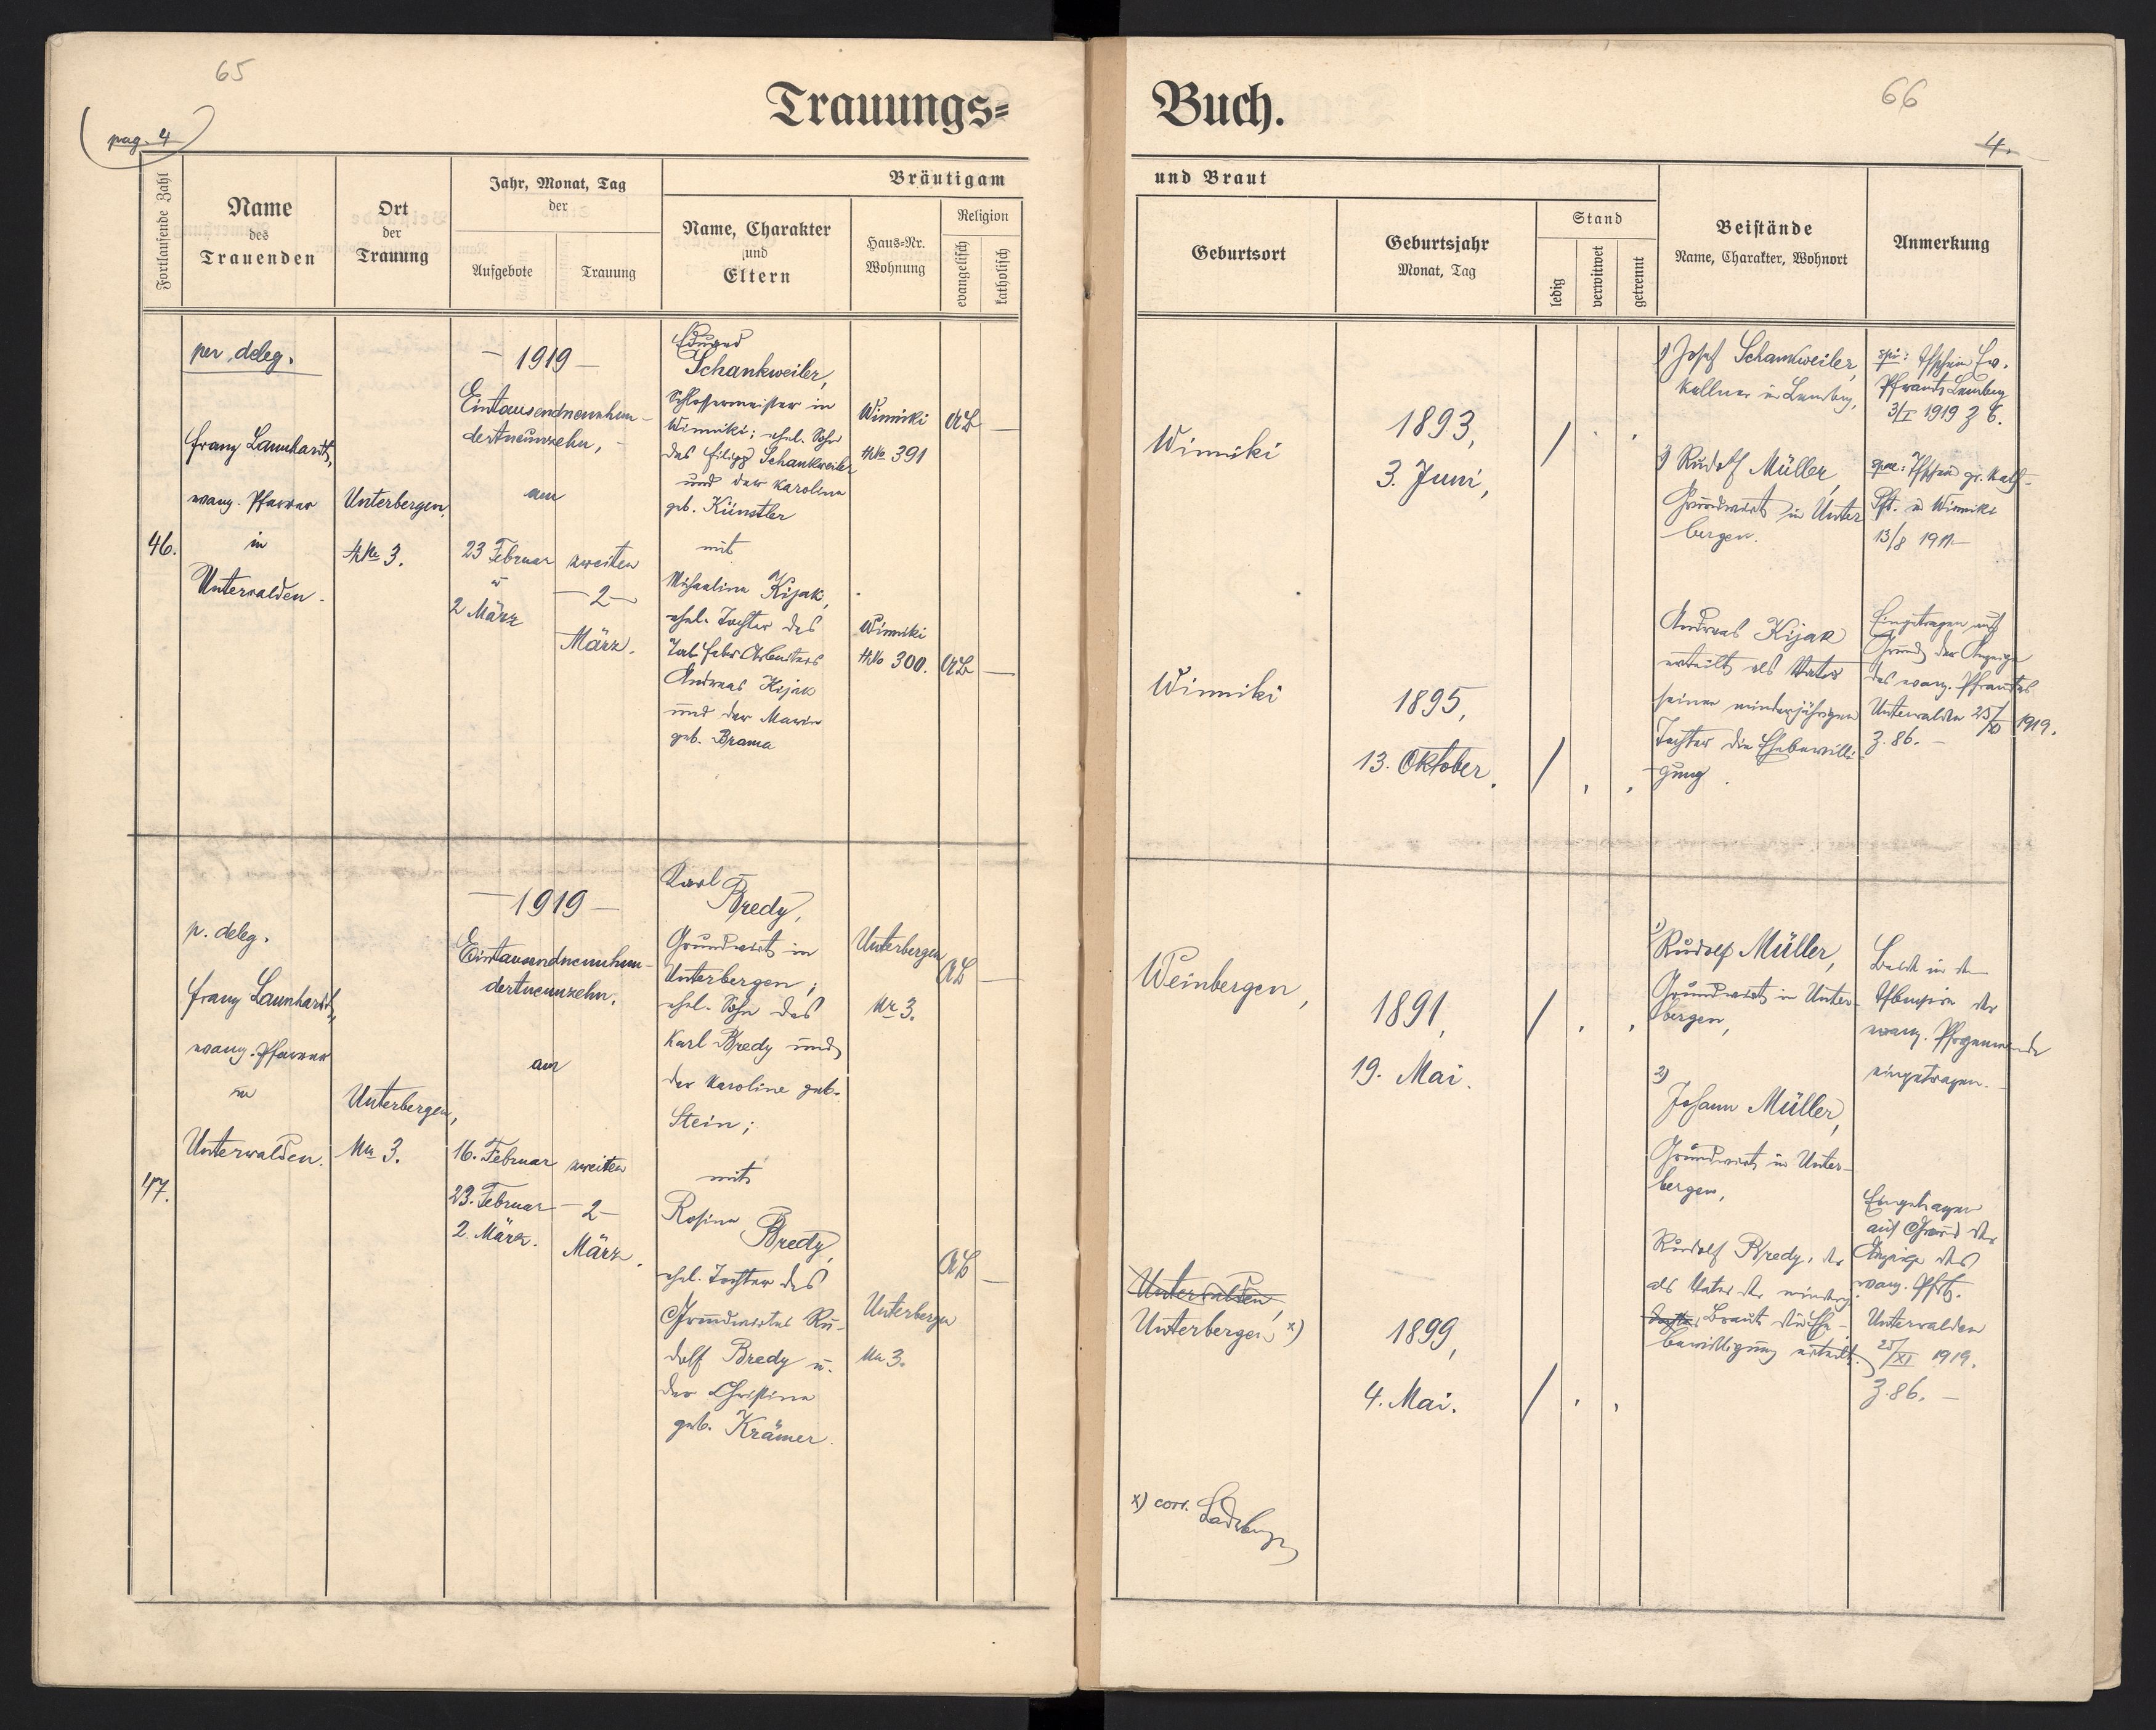 65
(pag. 4)
Trauungs-
Fortlaufende Zahl
Name
des
Trauenden
Ort
der
Trauung
Jahr, Monat, Tag
der
Aufgebote
Trauung
Bräutigam
Name, Charakter
und
Eltern
Haus-Nr.
Wohnung
Religion
evangelisch
katholisch
46.
per deleg.
Franz Launhardt,
evang. Pfarrer
in
Unterwalden.
Unterbergen,
No 3.
— 1919 —
Eintausendneunhun-
dertneunzehn,
am
23 Februar
u
2 März
zweiten
— 2 —
März.
Eduard
Schankweiler,
Schlossermeister in
Winniki; ehel. Sohn
des Filipp Schankweiler
und der Karoline
geb. Künstler
mit
Michaeline Kijak,
ehel. Tochter des
Tab. fabr. Arbeiters
Andreas Kijak
und der Marie
geb. Brama
Winniki
No 391
AB —
Winniki
No 300.
AB —
47.
p. deleg.
Franz Launhardt,
evang. Pfarrer
in
Unterwalden.
Unterbergen,
Nr 3.
— 1919 —
Eintausendneunhun-
dertneunzehn.
am
16. Februar
23. Februar
2. März.
zweiten
— 2 —
März.
Karl
Bredy,
Grundwirt in
Unterbergen;
ehel. Sohn des
Karl Bredy und
der Karoline geb.
Stein;
mit
Rosine
Bredy,
ehel. Tochter des
Grundwirtes Ru-
dolf Bredy u.
der Christine
geb. Krämer.
Unterbergen
Nr 3.
AB —
AB —
Unterbergen
Nr 3.
66
4.
Buch.
und Braut
Geburtsort
Geburtsjahr
Monat, Tag
Stand
ledig
verwitwet
getrennt
Beistände
Name, Charakter, Wohnort
Anmerkung
Winniki
1893,
3. Juni,
/
1) Josef Schankweiler,
Kellner in Lemberg,
2) Rudolf Müller,
Grundwirt in Unter
bergen.
Ev.
Pfarramts Lemberg
3/I 1919 Z 6.
gr. kath.
Winniki
13/8 1911 —
Winniki
1895,
13. Oktober.
/
Andreas Kijak
erteilt als Vater
seiner minderjährigen
Tochter die Ehebewilli-
gung.
Eingetragen auf
Grund der Anzeige
des evang. Pfarramtes
Unterwalden 25/XI 1919.
Z. 86. —
Weinbergen,
1891,
19. Mai.
/
1) Rudolf Müller,
Grundwirt in Unter-
bergen,
2)
Johann Müller,
Grundwirt in Unter-
bergen,
Beide in der
der
evang. Pfargemeinde
eingetragen. —
Unterwalden,
Unterbergen x)
1899,
4. Mai.
/
Rudolf Bredy, der
als Vater der minderj.
Tochter Braut die Ehe-
bewilligung erteilt.
Eingetragen
auf Grund der
Anzeige des
evang. Pfts.
Unterwalden
25/XI 1919.
Z. 86. —
x) corr.